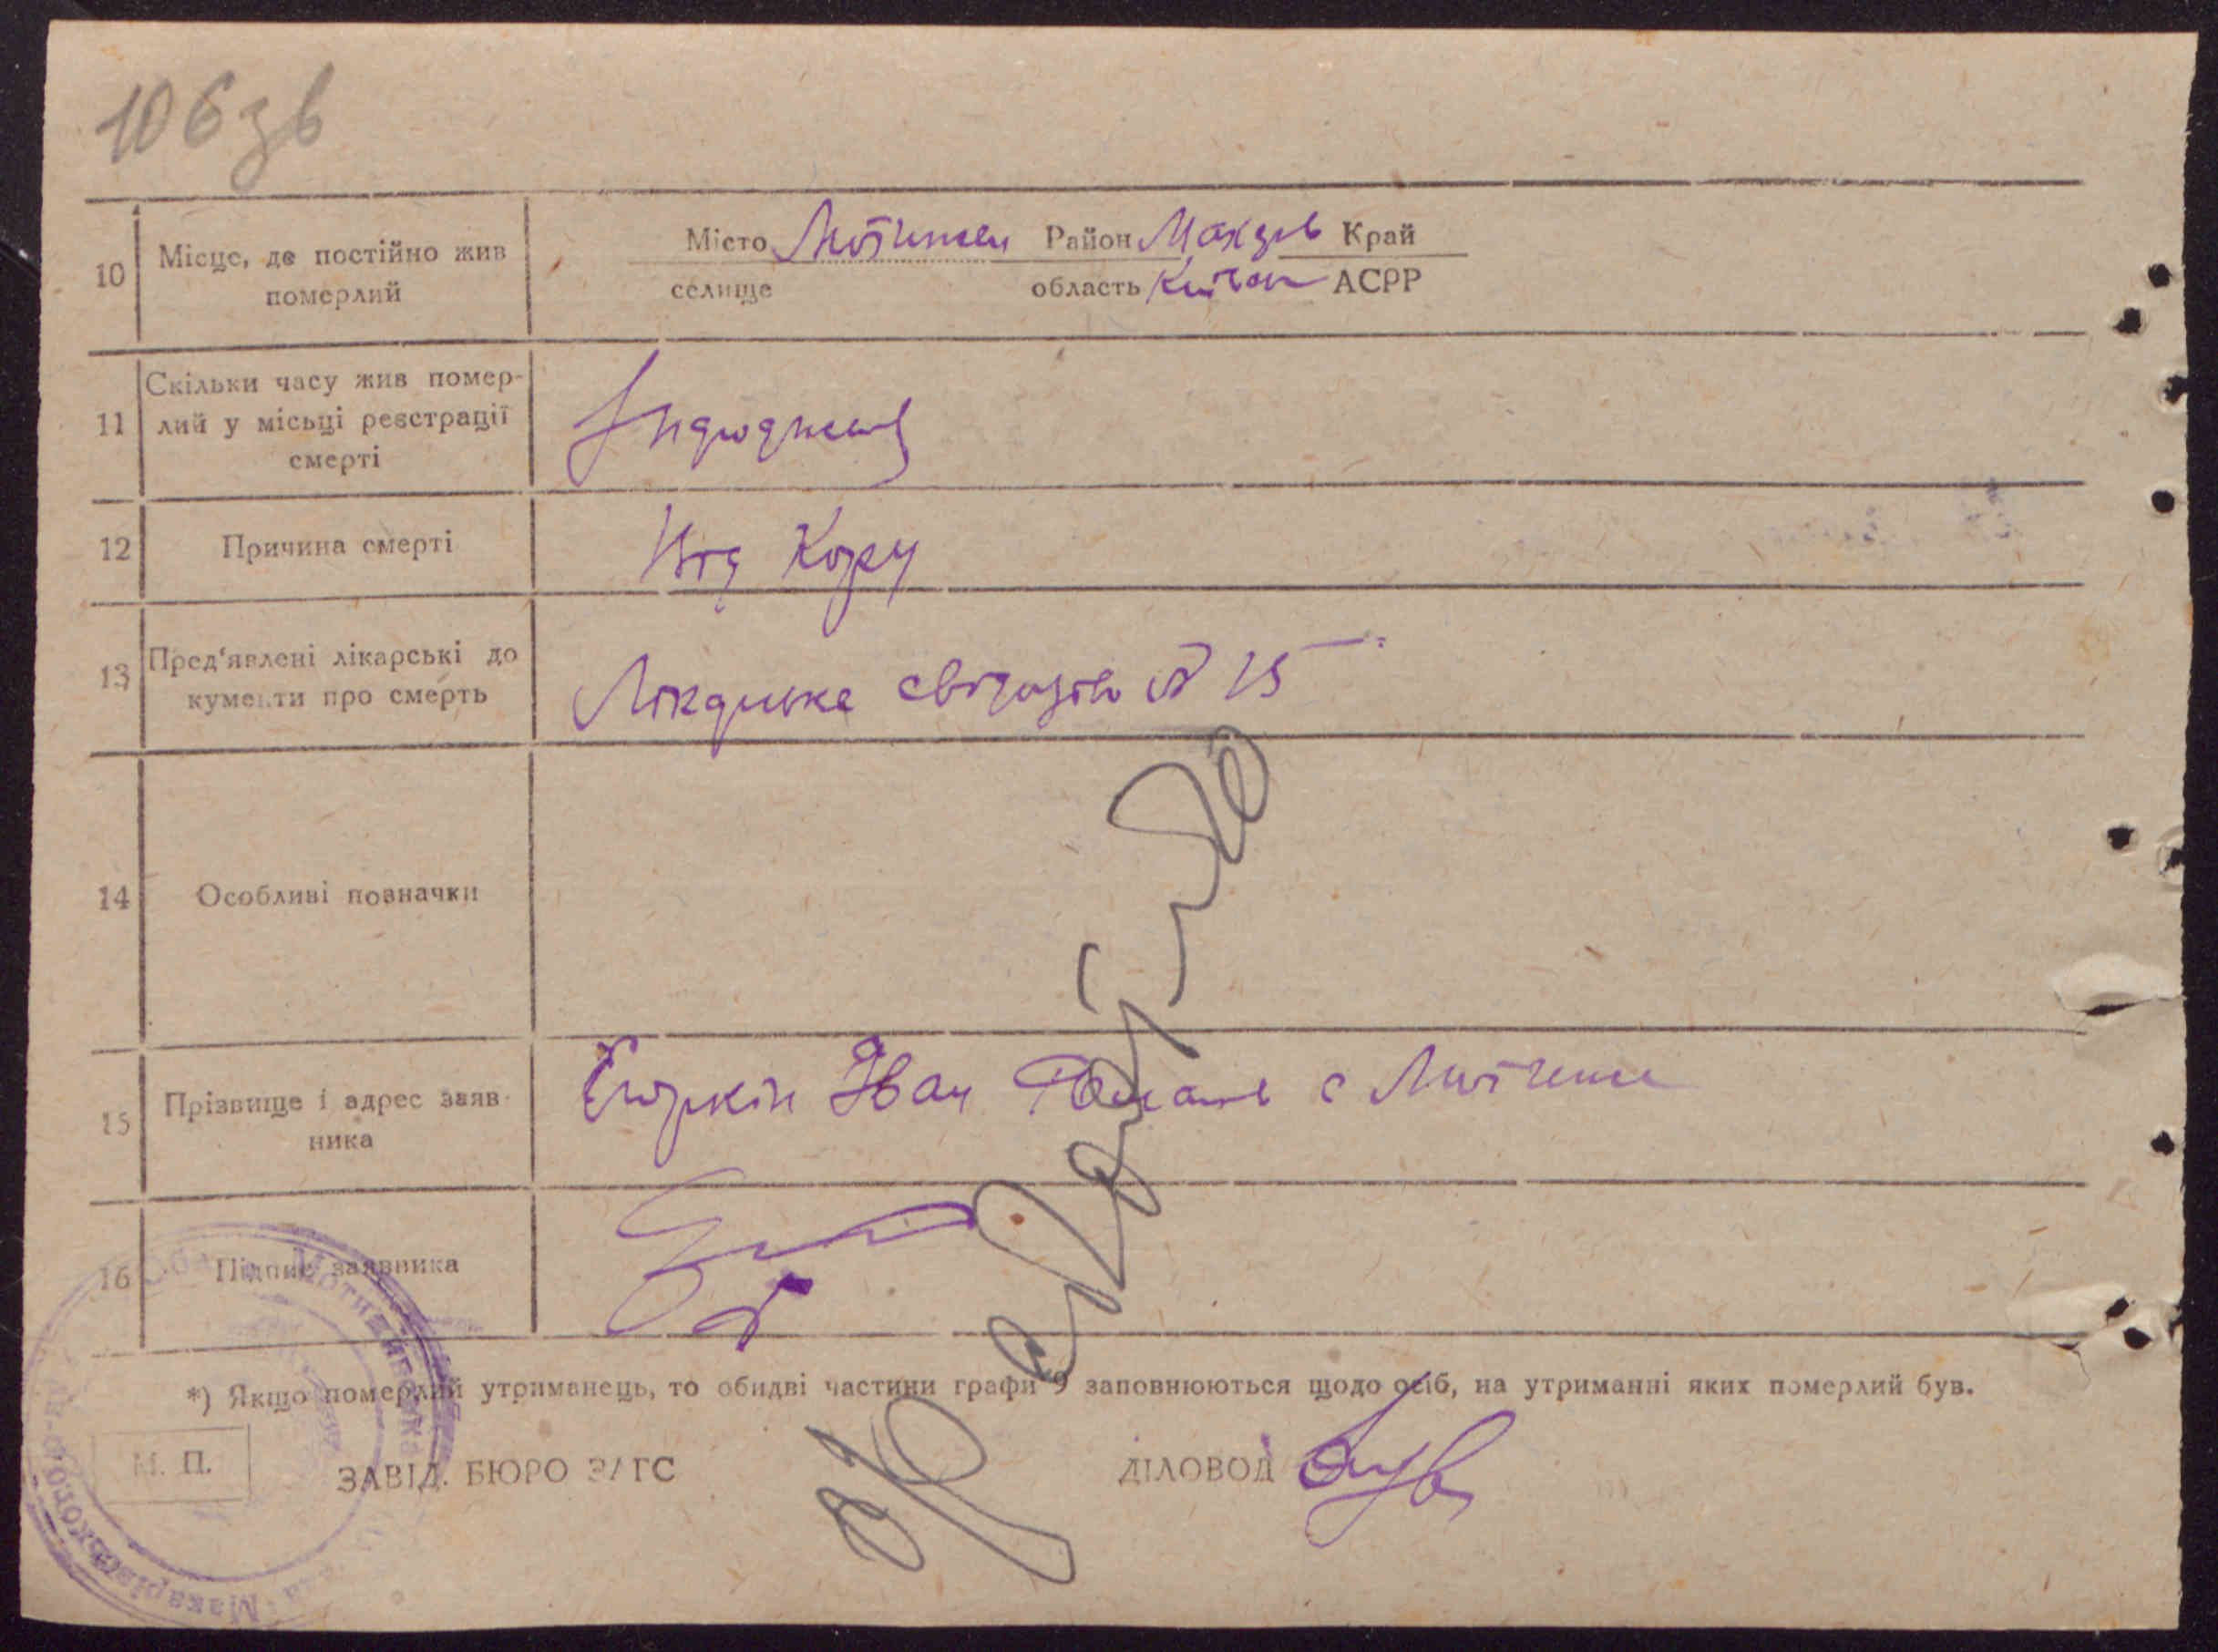 106 зв
10 Місце, де постійно жив померлий
Місто Мотижин Район Макарів Край
селище область Київськ АСРР
11 Скільки часу жив помер-
лий у місьці реєстрації
смерті
З народженя
12 Причина смерті
Від Кору
13 Пред'явлені лікарські до
кументи про смерть
Лікарське свідоцтво № 15
14 Особливі позначки
15 Прізвище і адрес заяв-
ника
Іван с Мотижин
16 Підпис заявника
*) Якщо померлий утриманець, то обидві частини графи 9 заповнюються щодо осіб, на утриманні яких померлий був.
М. П.
ЗАВІД. БЮРО ЗАГС
ДІЛОВОД